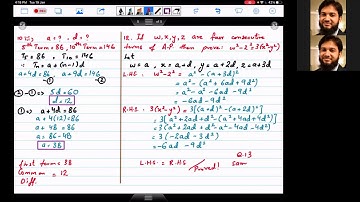 4:16 PM Tue 19 Jan
10. iv) a = ? , d = ?
5th Term = 86, 10th Term = 146
T5 = 86, T10 = 146
∴ Tn = a+(n-1)d
a+4d = 86 , a+9d = 146
②-① ⇒ 5d = 60
d = 12
① ⇒ a+4d = 86
a+4(12) = 86
a+48 = 86
a = 86-48
a = 38
first term = 38
Common Diff. = 12
12. If w, x, y, z are four consecutive
terms of A.P then prove: w²-z² = 3(x²-y²)
Let
w = a , x = a+d, y = a+2d, z = a+3d
L.H.S: w²-z² = a² - (a+3d)²
= a² - (a²+6ad+9d²)
= a² - a² - 6ad - 9d²
= -6ad - 9d²
R.H.S: 3(x²-y²) = 3[(a+d)² - (a+2d)²]
= 3[a²+2ad+d² - (a²+4ad+4d²)]
= 3(a²+2ad+d²-a²-4ad-4d²)
= 3(-2ad-3d²)
= -6ad - 9d²
L.H.S = R.H.S
Proved!
Q.13
Sam